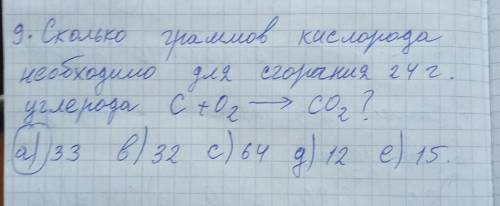 9. Сколько граммов кислорода
необходимо для сгорания 24 г.
углерода C + O₂ ⟶ CO₂?
а) 33 в) 32 с) 64 д) 12 е) 15.